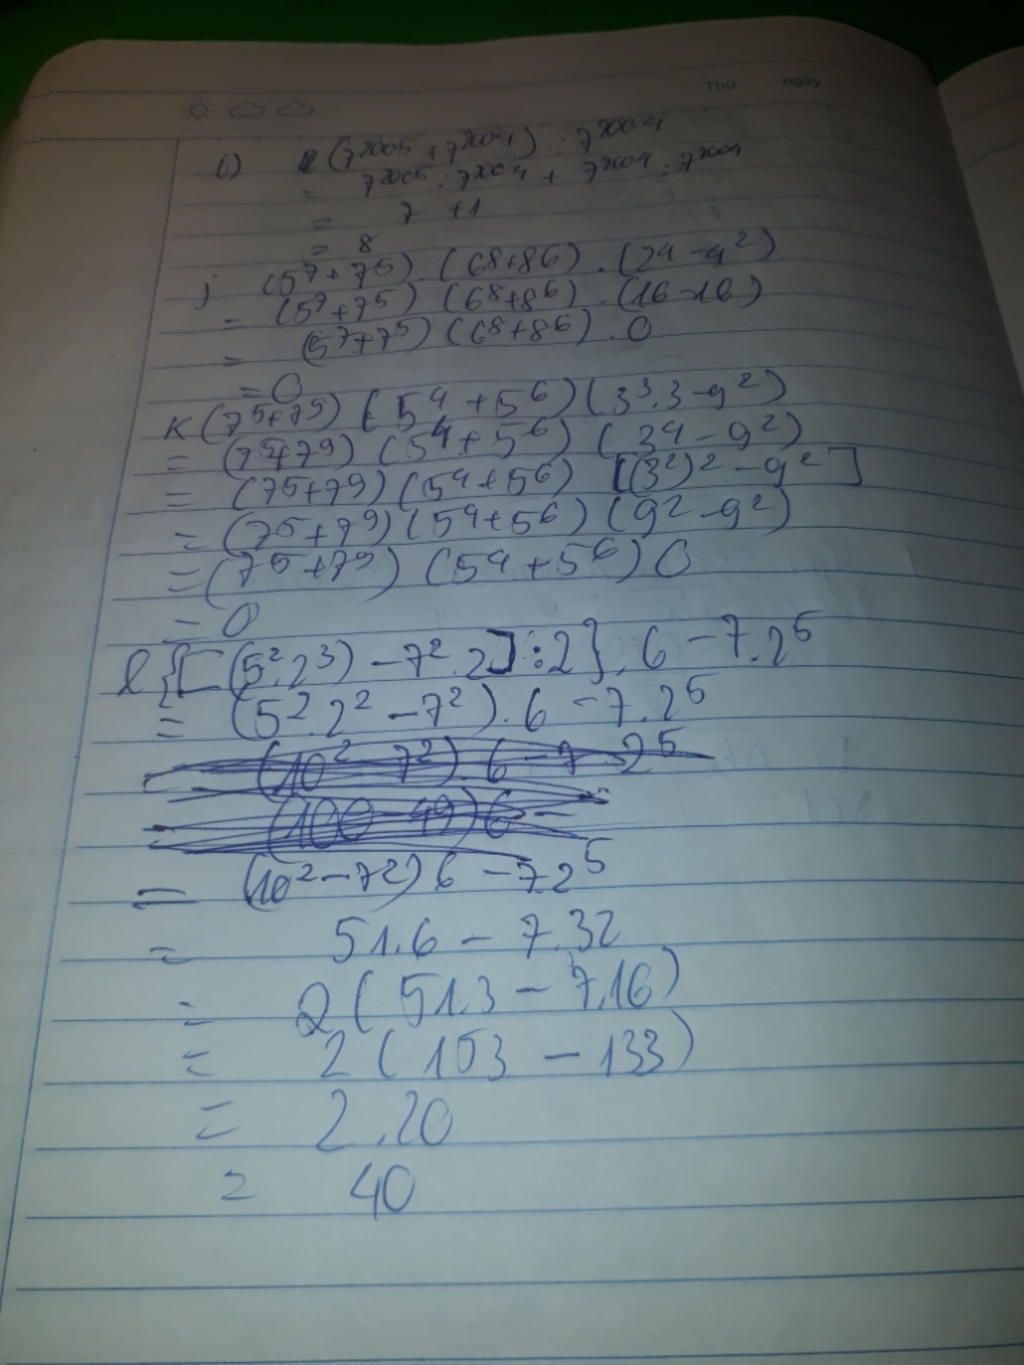 Thứ ngày
i) (7²⁰⁰⁵ + 7²⁰⁰⁴) : 7²⁰⁰⁴
= 7²⁰⁰⁵ : 7²⁰⁰⁴ + 7²⁰⁰⁴ : 7²⁰⁰⁴
= 7 + 1
= 8
j (5⁷ + 7⁵) . (6⁸ + 8⁶) . (2⁴ - 4²)
= (5⁷ + 7⁵) (6⁸ + 8⁶) . (16 - 16)
= (5⁷ + 7⁵) (6⁸ + 8⁶) . 0
= 0
K (7⁵ + 7⁹) (5⁴ + 5⁶) (3³.3 - 9²)
= (7⁵ + 7⁹) (5⁴ + 5⁶) (3⁴ - 9²)
= (7⁵ + 7⁹) (5⁴ + 5⁶) [(3²)² - 9²]
= (7⁵ + 7⁹) (5⁴ + 5⁶) (9² - 9²)
= (7⁵ + 7⁹) (5⁴ + 5⁶) 0
= 0
l {[(5².2³) - 7².2] : 2} . 6 - 7.2⁵
= (5².2² - 7²) . 6 - 7.2⁵
(10² - 7²) 6 - 7 2⁵
(100 - 49) 6 -
= (10² - 7²) 6 - 7.2⁵
= 51.6 - 7.32
= 2 (51.3 - 7.16)
= 2 (153 - 133)
= 2.20
= 40